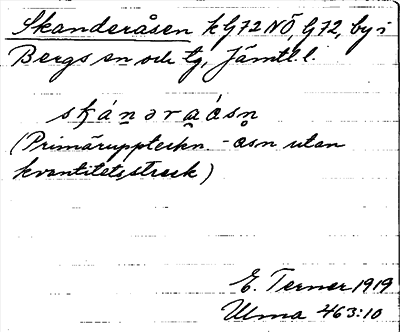 Skanderåsen k G72 NÖ, G72, by i
Bergs sn och tg, Jämtl. l.
skánəraåsn
(Primäruppteckn. -åsn utan
kvantitetsstreck)
E. Terner 1919
Ulma 463:10